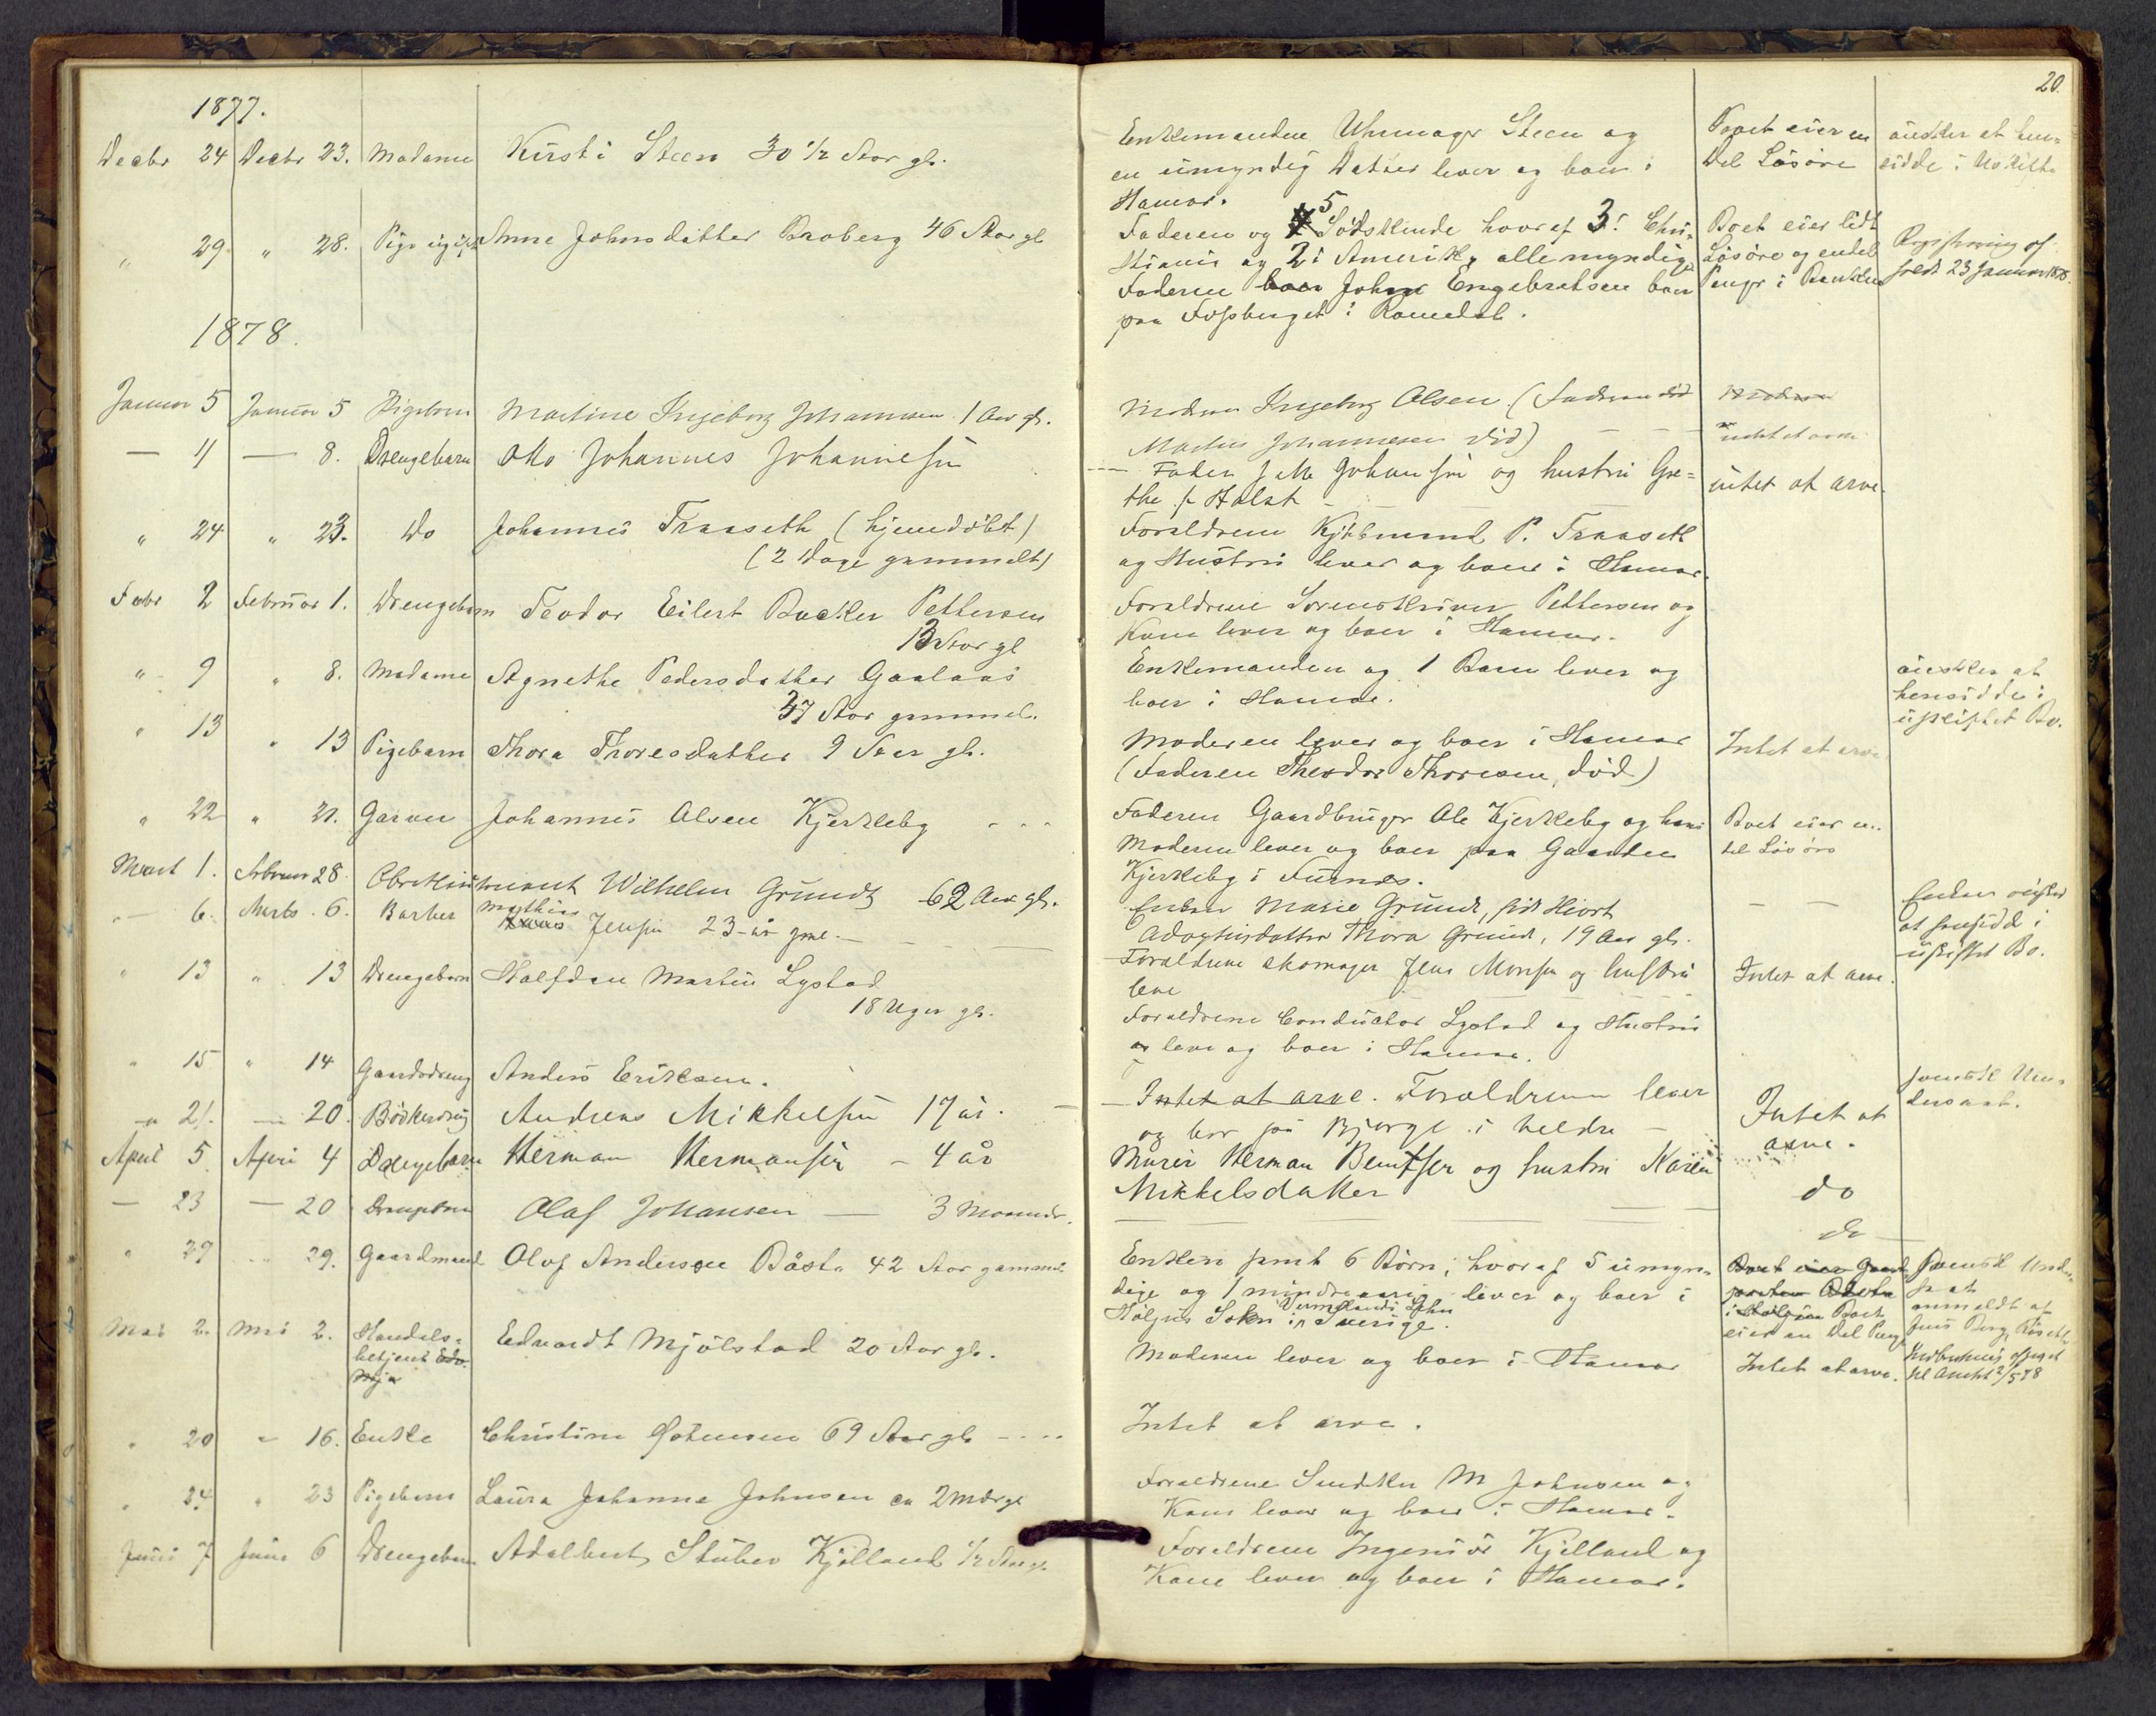 20.
1877.
Decbr 24 Decbr 23. Madame Kirsti Steen 30 1/2 Aar gl.
Enkemanden Uhrmager Steen og
en umyndig Datter lever og boer i
Hamar.
Boet eier en
Del Løsøre
ønsker at hen-
sidde i Uskifte
" 29 " 28. Pige ugift Anne Johnsdatter Broberg 46 Aar gl
Faderen og 5 Sødskende hvoraf 3 i Chri-
stiania og 2 i Amerika alle myndige
Faderen boer John Engebretsen boer
paa Fossberget i Romedal.
Boet eier lidt
Løsøre og endel
Penge i Banken
Registrering af-
holdt 23 Januar 1878.
1878.
Januar 5 Januar 5 Pigebarn Martine Ingeborg Johannesen 1 Aar gl.
Moderen Ingeborg Olsen (Faderen død
Martin Johannesen død)
Moderen
intet at arve
— 11 — 8. Drengebarn Otto Johannes Johannesen
Fader Johansen og hustru Gre-
the f. Holst
intet at arve.
" 24 " 23. Do Johannes Fraaseth (hjemdøbt)
(2 Dage gammelt)
Forældrene Kjøbmand P. Fraaseth
og Hustru lever og boer i Hamar.
Febr 2 Februar 1. Drengebarn Teodor Eilert Backer Pettersen
13 Aar gl
Forældrene Sorenskriver Pettersen og
Kone lever og boer i Hamar.
" 9 " 8. Madame Agnethe Pedersdatter Gaalaas
37 Aar gammel.
Enkemanden og 1 Barn lever og
boer i Hamar.
ønsker at
hensidde i
uskiftet Bo.
" 13 " 13 Pigebarn Thora Thoresdatter 9 Aar gl.
Moderen lever og boer i Hamar
(Faderen Theodor Thoresen, død)
Intet at arve
" 22 " 21. Garver Johannes Olsen Kjerkeby
Faderen Gaardbruger Ole Kjerkeby og hans
Moderen lever og boer paa Gaarden
Kjerkeby i Furnes.
Boet eier en
del Løsøre
Marts 1. Februar 28. Oberstlieutenant Wilhelm Grundt 62 Aar gl.
Enken Marie Grundt, født Hiort
Adoptivdatter Thora Grundt, 19 Aar gl.
Enken ønsker
at hensidde i
uskiftet Bo.
— 6. Marts 6. Barber Mathias
Hans Jensen 23 år gml.
Forældrene skomager Jens Monsen og hustru
leve
Intet at arve.
" 13 " 13 Drengebarn Halfdan Martin Lystad
18 Uger gl.
Forældrene Conductør Lystad og Hustru
og leve og boer i Hamar.
" 15 " 14 Gaardsdreng Anders Eriksen.
Intet at arve.
svensk Un-
dersaat.
— 21. — 20. Bødkerdreng Andreas Mikkelsen 17 år.
Forældrene lever
og bor på Bjørge i Veldre
Intet at
arve.
April 5. April 4 Drengebarn Herman Hermansen — 4 år
Murer Herman Berntsen og hustru Karen
Mikkelsdatter
do
— 23 — 20 Drengebarn Olaf Johansen — 3 Maaneder.
do
" 29 " 29. Gaardmand Olof Andersen Båsta 42 Aar gammel
Enken samt 6 Børn, hvoraf 5 umyn-
dige og 1 mindreaarig lever og boer i
Høljes Sokn i Vermlands Lehn Sverige.
Boet eier Gaard-
parten Båsta
i Høljes Boet
eier en Del Penge
Svensk Under-
saat
anmeldt af
Mai 2. Mai 2. Handels-
betjent Edv.
Mjø
Edvardt Mjølstad 20 Aar gl.
Moderen lever og boer i Hamar
Intet at arve.
Indberetning afsendt
til Amtet 2/5 78
" 20 " 16. Enke Christine Sørensen 69 Aar gl
Intet at arve.
" 24 " 23 Pigebarn Laura Johanne Johnsen ca 2 Mdr gl
Forældrene Snedker M Johnsen og
Kone lever og boer i Hamar.
Juni 7 Juni 6 Drengebarn Adalbert Stuber Kjelland 1/2 Aar gl.
Forældrene Ingeniør Kjelland og
Kone lever og boer i Hamar.